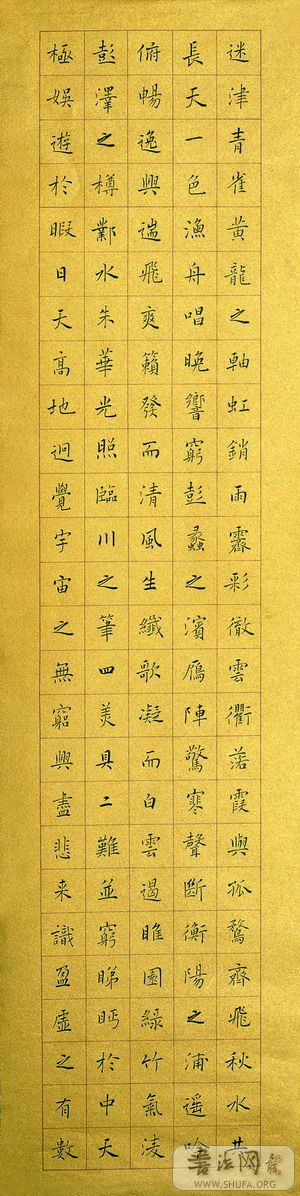 迷津青雀黃龍之軸虹銷雨霽彩徹雲衢落霞與孤鶩齊飛秋水共
長天一色漁舟唱晚響窮彭蠡之濱鴈陣驚寒聲斷衡陽之浦遙吟
俯暢逸興遄飛爽籟發而清風生纖歌凝而白雲遏睢園綠竹氣淩
彭澤之樽鄴水朱華光照臨川之筆四美具二難並窮睇眄於中天
極娛遊於暇日天高地迥覺宇宙之無窮興盡悲来識盈虛之有數
書法网
WWW.SHUFA.ORG